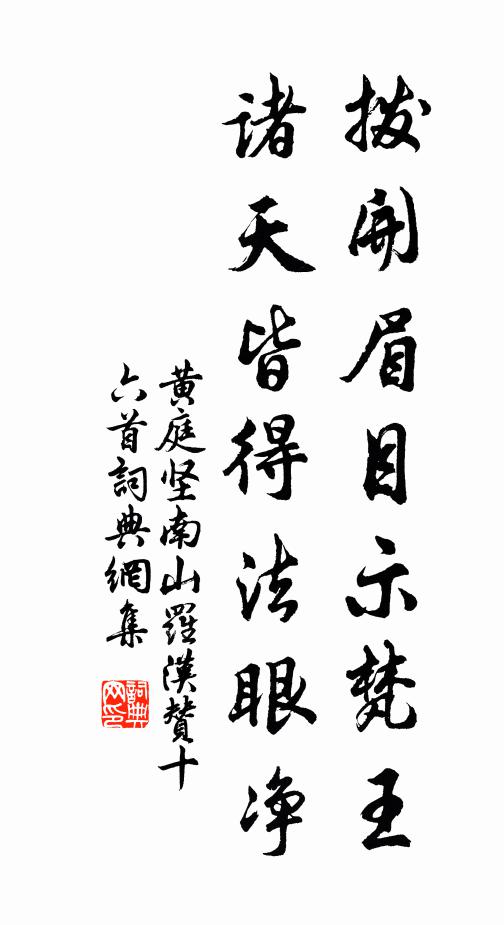 拨開眉目示梵王
諸天皆得法眼净
黄庭坚南山羅漢贊十
六首詞典網集
詞典
网印